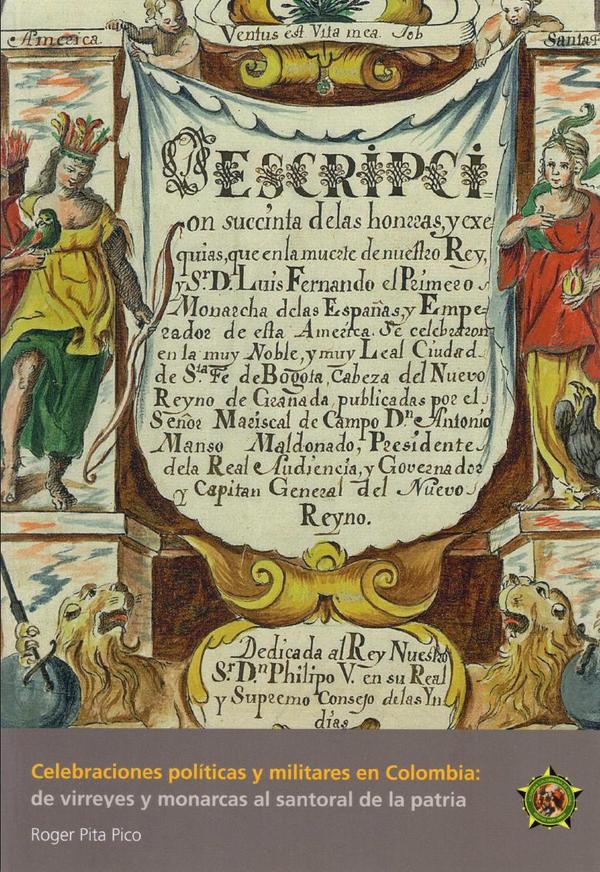 America.
Ventus est Vita mea. Job
Santa F
DESCRIPCI-
on succinta de las honrras, y exe
quias, que en la muerte de nuestro Rey,
y Sr. D. Luis Fernando el Primero
Monarcha de las Españas, y Empe-
rador de esta America. Se celebraron
en la muy Noble, y muy Leal Ciudad
de Sta. Fe de Bogota, Cabeza del Nuevo
Reyno de Granada, publicadas por el
Señor Mariscal de Campo Dn. Antonio
Manso Maldonado, Presidente
de la Real Audiencia, y Governador
y Capitan General del Nuevo
Reyno.
Dedicada al Rey Nuestro
Sr. Dn Philipo V. en su Real
y Supremo Consejo de las Yn
dias
Celebraciones políticas y militares en Colombia:
de virreyes y monarcas al santoral de la patria
Roger Pita Pico